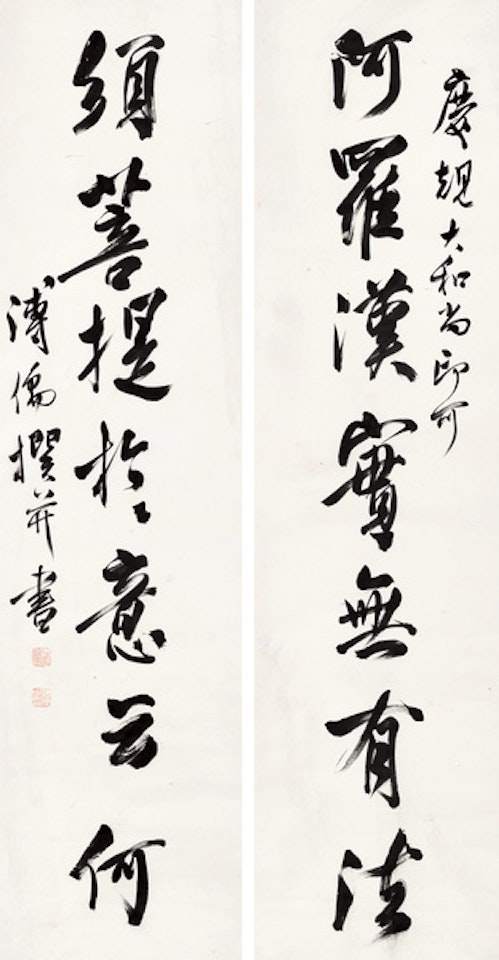 慶規大和尚印可
阿羅漢實無有法
須菩提於意云何
溥儒撰并書